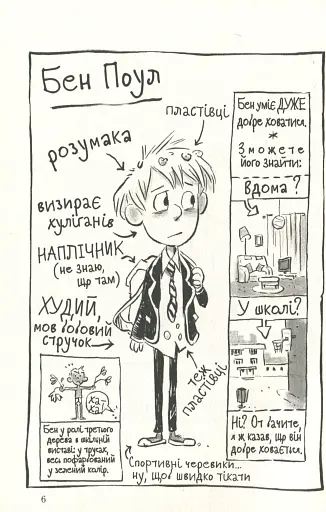 Бен Поул
пластівці
розумака
визирає
хуліганів
НАПЛІЧНИК
(не знаю,
що там)
ХУДИЙ,
мов бобовий
стручок
теж
пластівці
Спортивні черевики...
ну, щоб швидко тікати
Бен уміє ДУЖЕ
добре ховатися.
*
Зможете
його знайти:
Вдома?
У школі?
Ні? От бачите,
я ж казав, що він
добре ховається.
ха
ха
Бен у ролі третього
дерева в шкільній
виставі: у трусах,
весь пофарбований
у зелений колір.
6